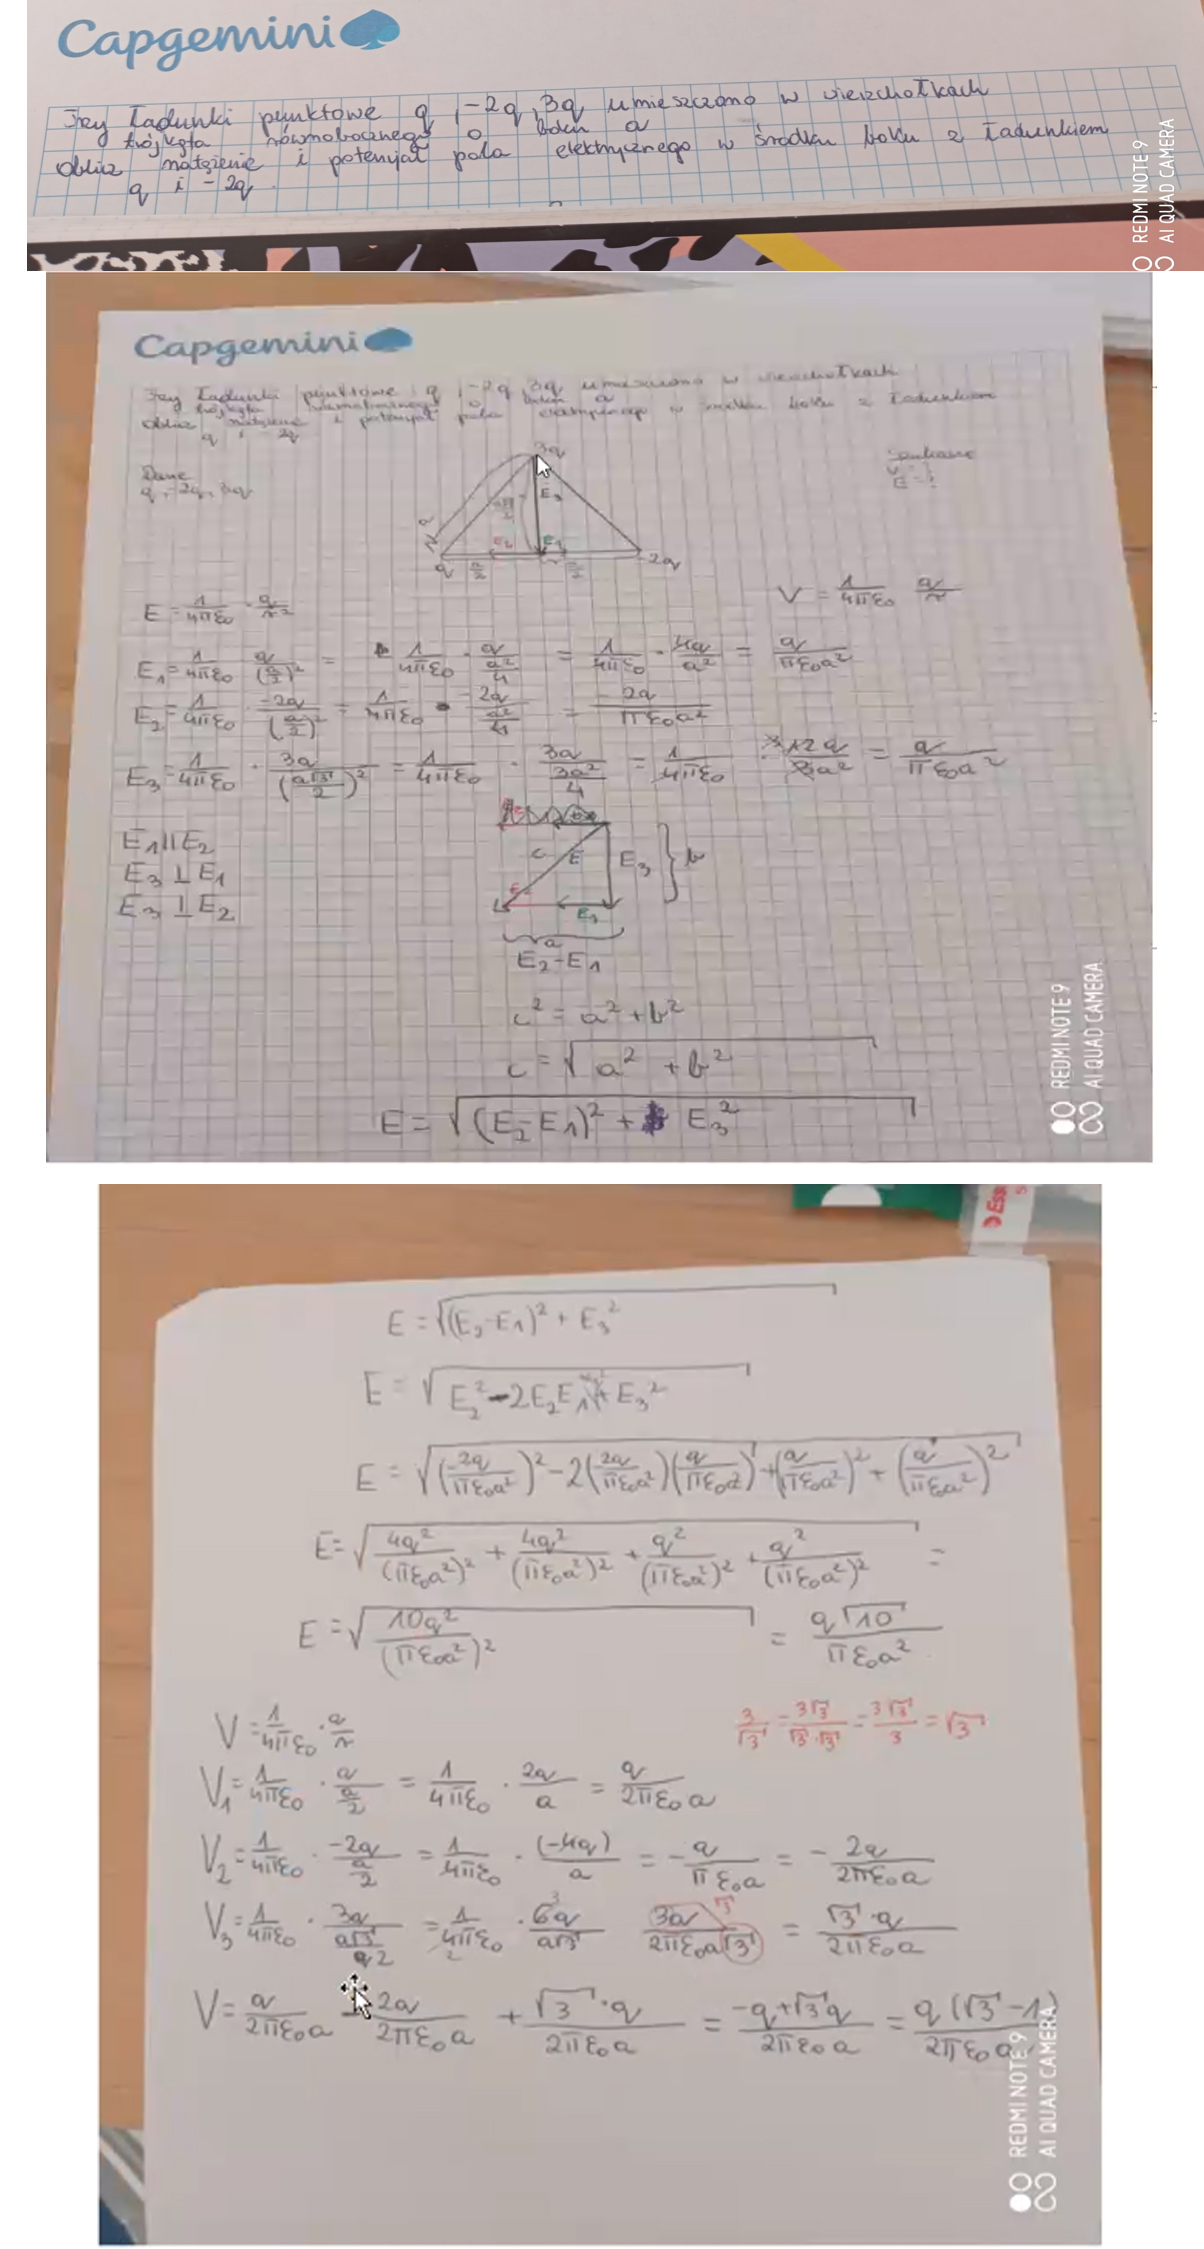 Capgemini
Trzy ładunki punktowe q, -2q, 3q umieszczono w wierzchołkach
trójkąta równobocznego o boku a
oblicz natężenie i potencjał pola elektrycznego w środku boku z ładunkiem
q i -2q
REDMI NOTE 9
AI QUAD CAMERA
Capgemini
Trzy ładunki punktowe q, -2q, 3q umieszczono w wierzchołkach
trójkąta równobocznego o boku a
oblicz natężenie i potencjał pola elektrycznego w środku boku z ładunkiem
q i -2q
Dane
q, -2q, 3q
Szukane
V = ?
E = ?
3q
a
a√3/2
E3
E2 E1
q a/2 a/2 -2q
E = 1/4πε0 · q/r²
V = 1/4πε0 q/r
E1 = 1/4πε0 q/(a/2)² = 1/4πε0 · q/(a²/4) = 1/4πε0 · 4q/a² = q/πε0a²
E2 = 1/4πε0 · -2q/(a/2)² = 1/4πε0 · -2q/(a²/4) = -2q/πε0a²
E3 = 1/4πε0 · 3q/(a√3/2)² = 1/4πε0 · 3q/(3a²/4) = 1/4πε0 · 12q/3a² = q/πε0a²
E1 || E2
E3 ⊥ E1
E3 ⊥ E2
c E E3 b
E2 E1
a
E2-E1
c² = a² + b²
c = √(a² + b²)
E = √((E2-E1)² + E3²)
REDMI NOTE 9
AI QUAD CAMERA
E = √((E2-E1)² + E3²)
E = √(E2² - 2E2E1 + E3²)
E = √((-2q/πε0a²)² - 2(2q/πε0a²)(q/πε0a²) + (q/πε0a²)² + (q/πε0a²)²)
E = √(4q²/(πε0a²)² + 4q²/(πε0a²)² + q²/(πε0a²)² + q²/(πε0a²)²) =
E = √(10q²/(πε0a²)²) = q√10/πε0a²
V = 1/4πε0 · q/r
3/√3 = 3√3/√3·√3 = 3√3/3 = √3
V1 = 1/4πε0 · q/(a/2) = 1/4πε0 · 2q/a = q/2πε0a
V2 = 1/4πε0 · -2q/(a/2) = 1/4πε0 · (-4q)/a = -q/πε0a = -2q/2πε0a
V3 = 1/4πε0 · 3q/(a√3/2) = 1/4πε0 · 6q/a√3 3q/2πε0a√3 = √3·q/2πε0a
V = q/2πε0a - 2q/2πε0a + √3·q/2πε0a = -q+√3q/2πε0a = q(√3-1)/2πε0a
REDMI NOTE 9
AI QUAD CAMERA